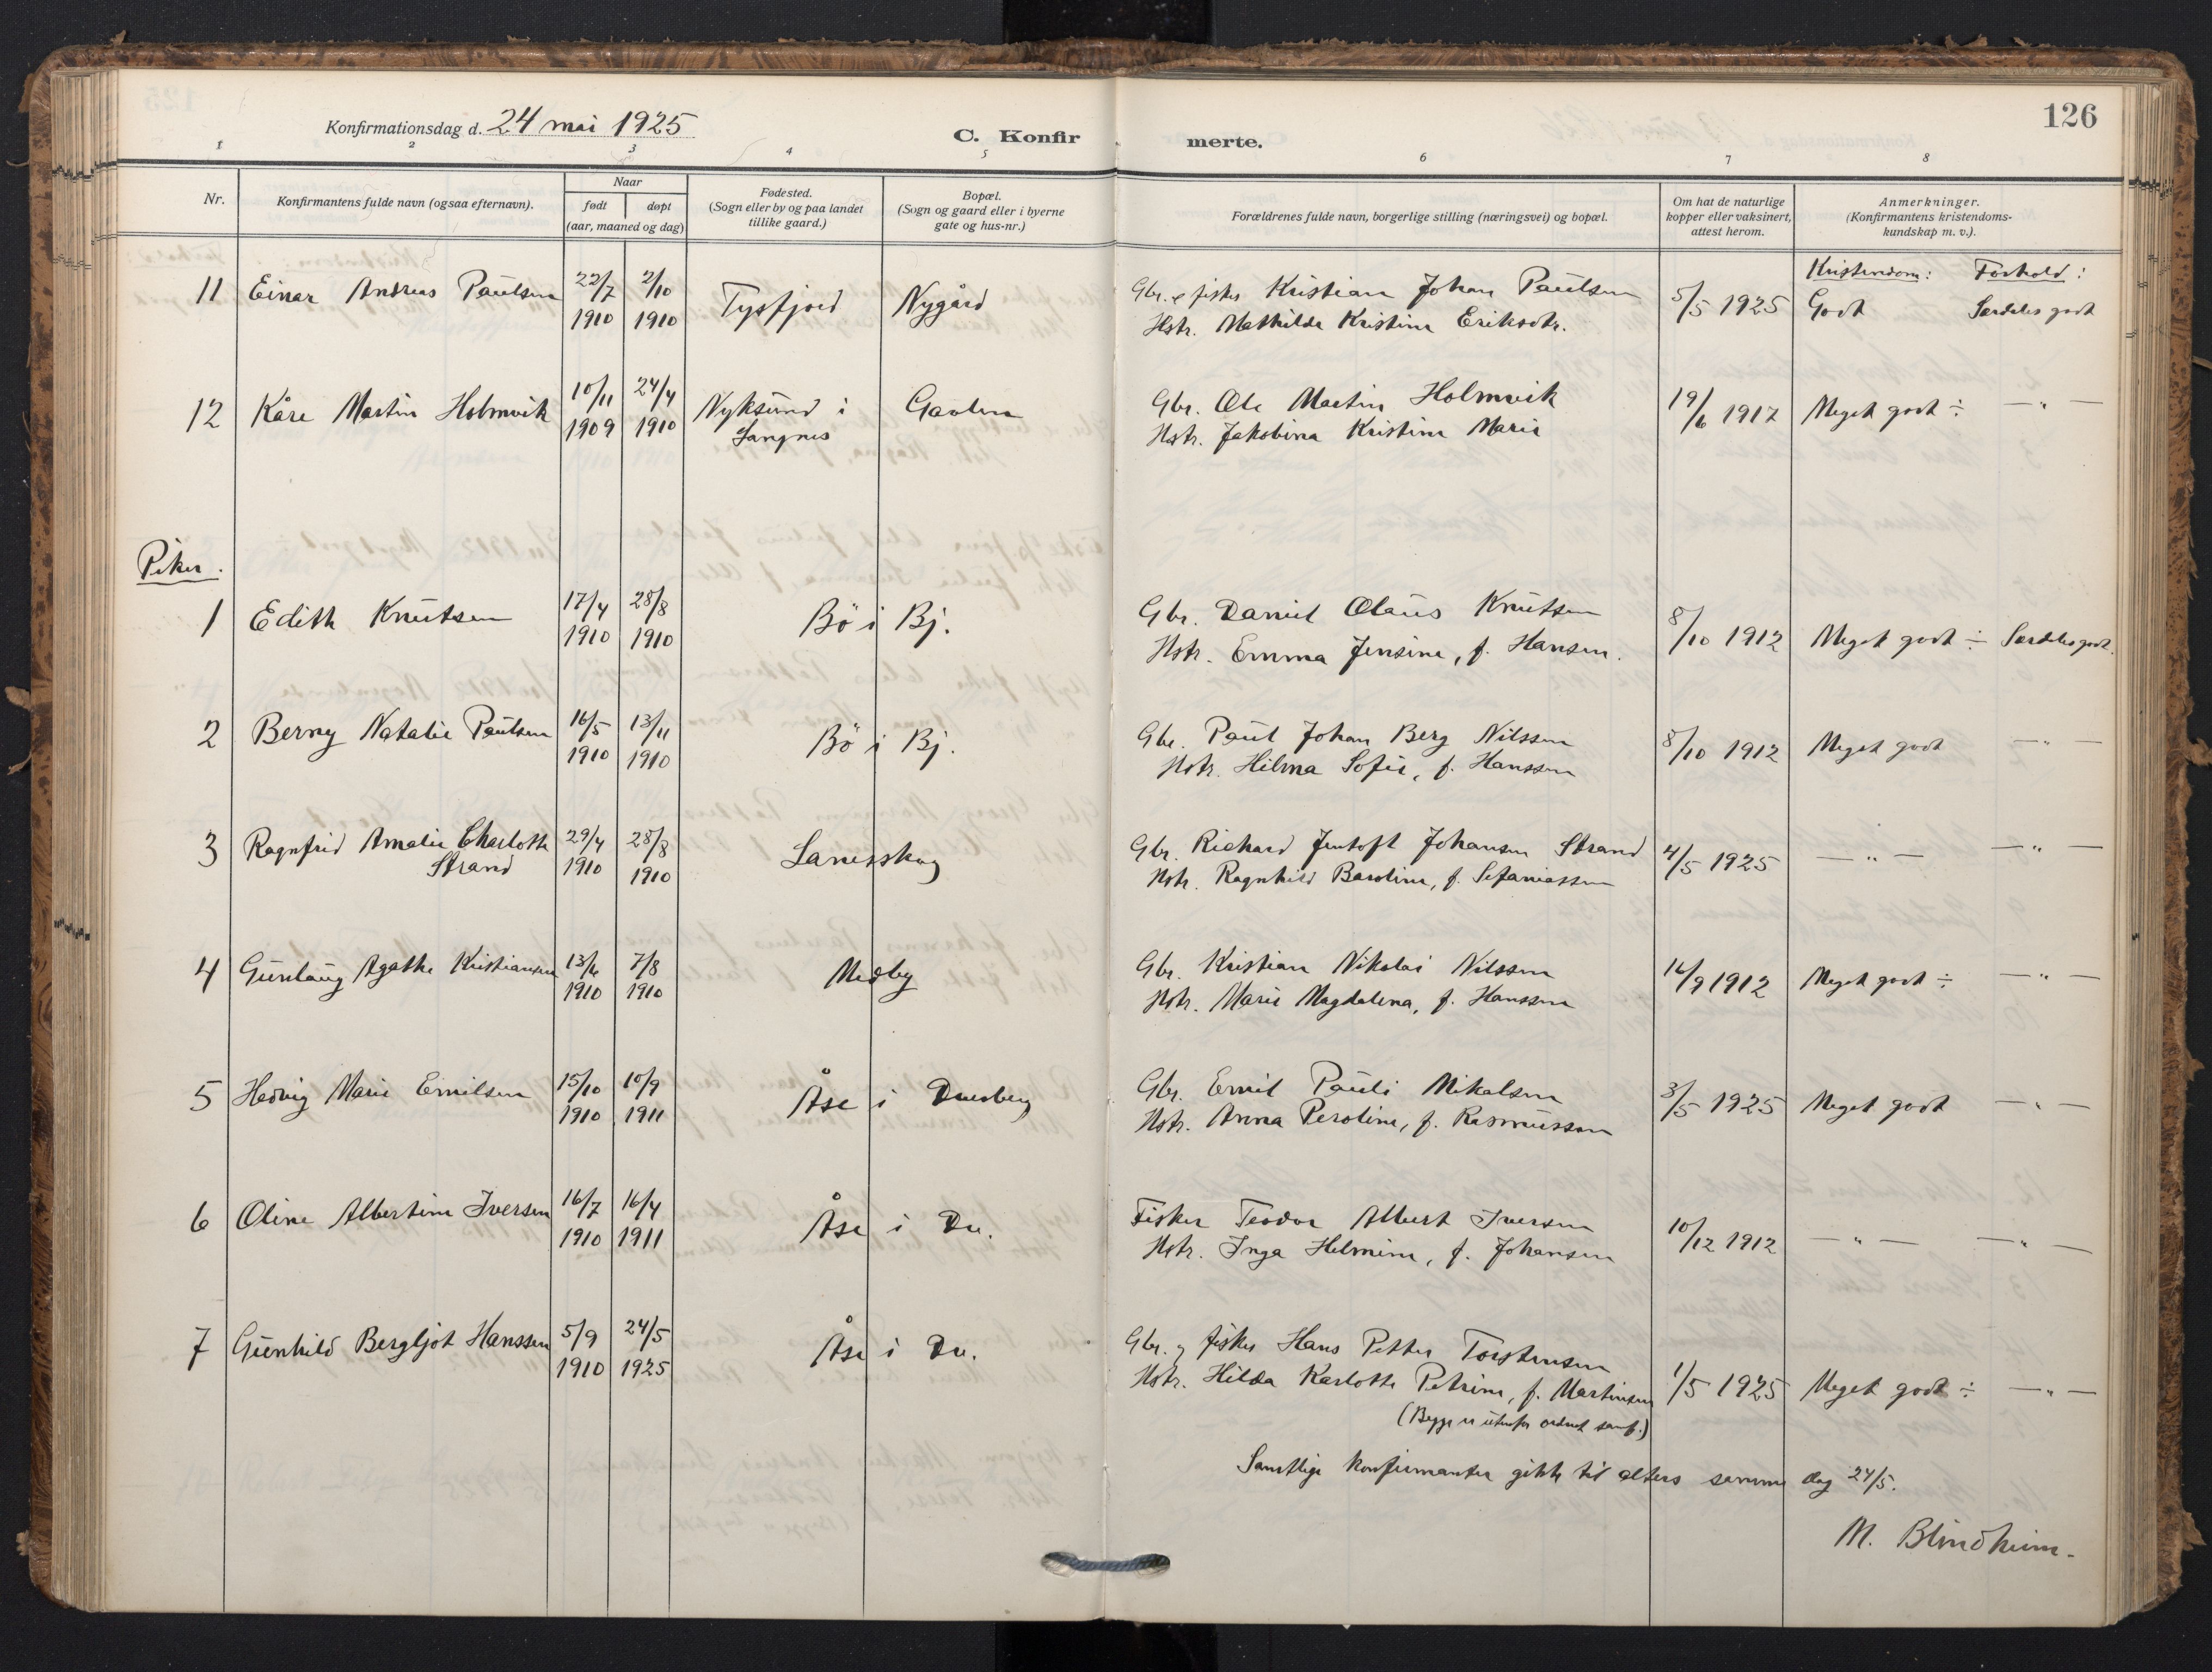 126
Konfirmationsdag d. 24 mai 1925
C. Konfirmerte.
1 2 3 4 5 6 7 8
Nr.
Konfirmantens fulde navn (ogsaa efternavn).
Naar
født døpt
(aar, maaned og dag)
Fødested.
(Sogn eller by og paa landet
tillike gaard.)
Bopæl.
(Sogn og gaard eller i byerne
gate og hus-nr.)
Forældrenes fulde navn, borgerlige stilling (næringsvei) og bopæl.
Om hat de naturlige
kopper eller vaksinert,
attest herom.
Anmerkninger.
(Konfirmantens kristendoms-
kundskap m. v.).
Kristendom: Forhold:
11 Einar Andreas Paulsen 22/7 1910 2/10 1910 Tysfjord Nygård
Gbr. & fisker Kristian Johan Paulsen
Hstr. Mathilde Kristine Eriksdtr.
5/5 1925 Godt Særdeles godt
12 Kåre Martin Holmvik 10/11 1909 24/4 1910 Nyksund i
Langnes
Gavlen
Gbr. Ole Martin Holmvik
Hstr. Jakobina Kristine Marie
19/6 1917 Meget godt ÷ — " —
Piker.
1 Edith Knutsen 17/4 1910 28/8 1910 Bö i Bj.
Gbr. Daniel Olaus Knutsen
Hstr. Emma Jensine, f. Hansen.
8/10 1912 Meget godt ÷ Særdeles godt.
2 Berny Natalie Paulsen 16/5 1910 13/11 1910 Bö i Bj.
Gbr. Paul Johan Berg Nilssen
Hstr. Hilma Sofie, f. Hanssen
8/10 1912 Meget godt — " —
3 Ragnfrid Amalie Charlotte
Strand
29/4 1910 28/8 1910 Lanesskog
Gbr. Richard Jentoft Johansen Strand
Hstr. Ragnhild Baroline, f. Sefaniassen
4/5 1925 — " — — " —
4 Gunlaug Agathe Kristiansen 13/6 1910 7/8 1910 Medby
Gbr. Kristian Nikolai Nilssen
Hstr. Marie Magdalena, f. Hanssen
16/9 1912 Meget godt ÷ — " —
5 Hedvig Marie Emilsen 15/10 1910 10/9 1911 Åse i Dverberg
Gbr. Emil Pauli Mikalsen
Hstr. Anna Peroline, f. Rasmussen
3/5 1925 Meget godt — " —
6 Oline Albertine Iversen 16/7 1910 16/4 1911 Åse i Dv.
Fisker Teodor Albert Iversen
Hstr. Inga Helmine, f. Johansen
10/12 1912 — " — — " —
7 Gunhild Bergljot Hanssen 5/9 1910 24/5 1925 Åse i Dv.
Gbr. og fisker Hans Petter Torstensen
Hstr. Hilda Karlotte Petrine, f. Martinsen
(Begge er utenfor ordnet samf.)
1/5 1925 Meget godt ÷ — " —
Samtlige konfirmanter gikk til alters samme dag 24/5.
M. Blindheim.